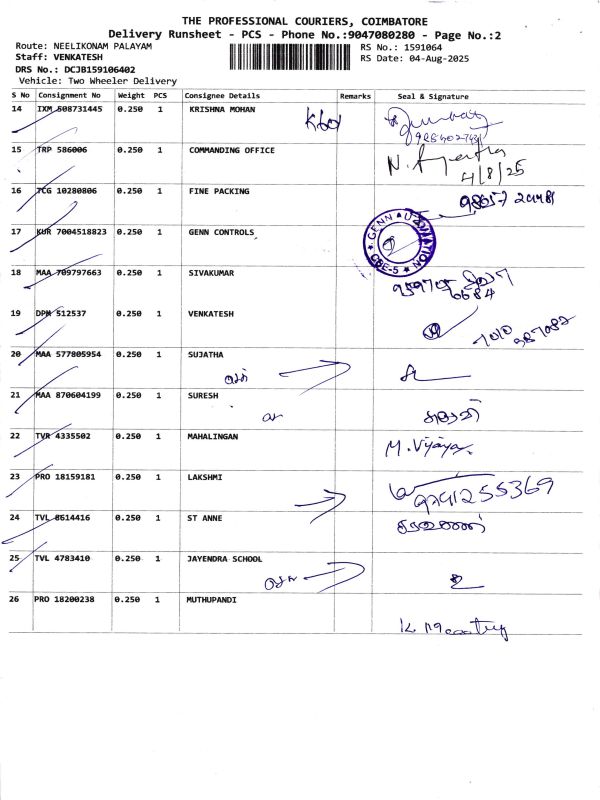 THE PROFESSIONAL COURIERS, COIMBATORE
Delivery Runsheet - PCS - Phone No.:9047080280 - Page No.:2
Route: NEELIKONAM PALAYAM RS No.: 1591064
Staff: VENKATESH RS Date: 04-Aug-2025
DRS No.: DCJB159106402
Vehicle: Two Wheeler Delivery
S No Consignment No Weight PCS Consignee Details Remarks Seal & Signature
14 IXM 508731445 0.250 1 KRISHNA MOHAN
15 TRP 586006 0.250 1 COMMANDING OFFICE
4/8/25
16 TCG 10280806 0.250 1 FINE PACKING
17 KUR 7004518823 0.250 1 GENN CONTROLS
GENN CBE-5
18 MAA 709797663 0.250 1 SIVAKUMAR
19 DPM 512537 0.250 1 VENKATESH
20 MAA 577805954 0.250 1 SUJATHA
21 MAA 870604199 0.250 1 SURESH
22 TVR 4335502 0.250 1 MAHALINGAN
M. Vijaya.
23 PRO 18159181 0.250 1 LAKSHMI
9741255369
24 TVL 8614416 0.250 1 ST ANNE
25 TVL 4783410 0.250 1 JAYENDRA SCHOOL
26 PRO 18200238 0.250 1 MUTHUPANDI